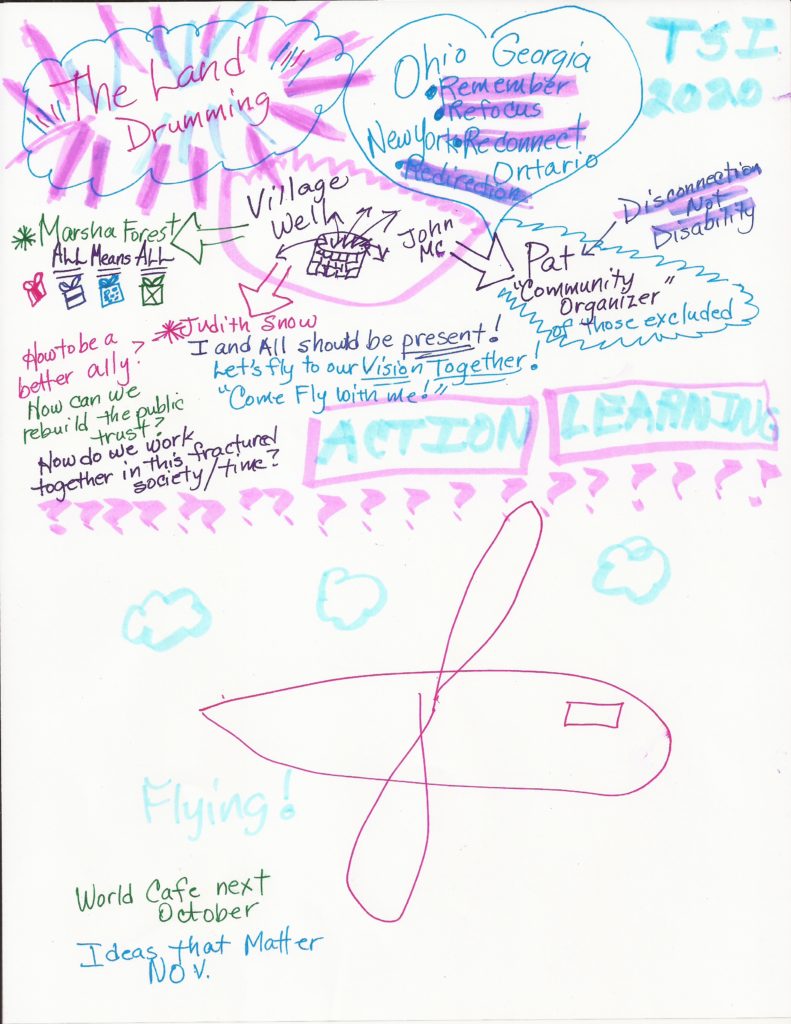 The Land
Drumming
Ohio Georgia
• Remember
• Refocus
New York • Reconnect
Ontario
• Redirection
TSI
2020
Disconnection
Not
Disability
Village
Well
John
MC
Pat
"Community
Organizer"
of those excluded
* Marsha Forest
ALL Means ALL
* Judith Snow
I and All should be present!
Let's fly to our Vision Together!
"Come Fly with me!"
How to be a
better ally?
How can we
rebuild the public
trust?
How do we work
together in this fractured
society/time?
ACTION
LEARNING
? ? ? ? ? ? ? ? ? ? ? ? ? ? ? ? ? ? ? ? ?
Flying!
World Cafe next
October
Ideas that Matter
NOV.